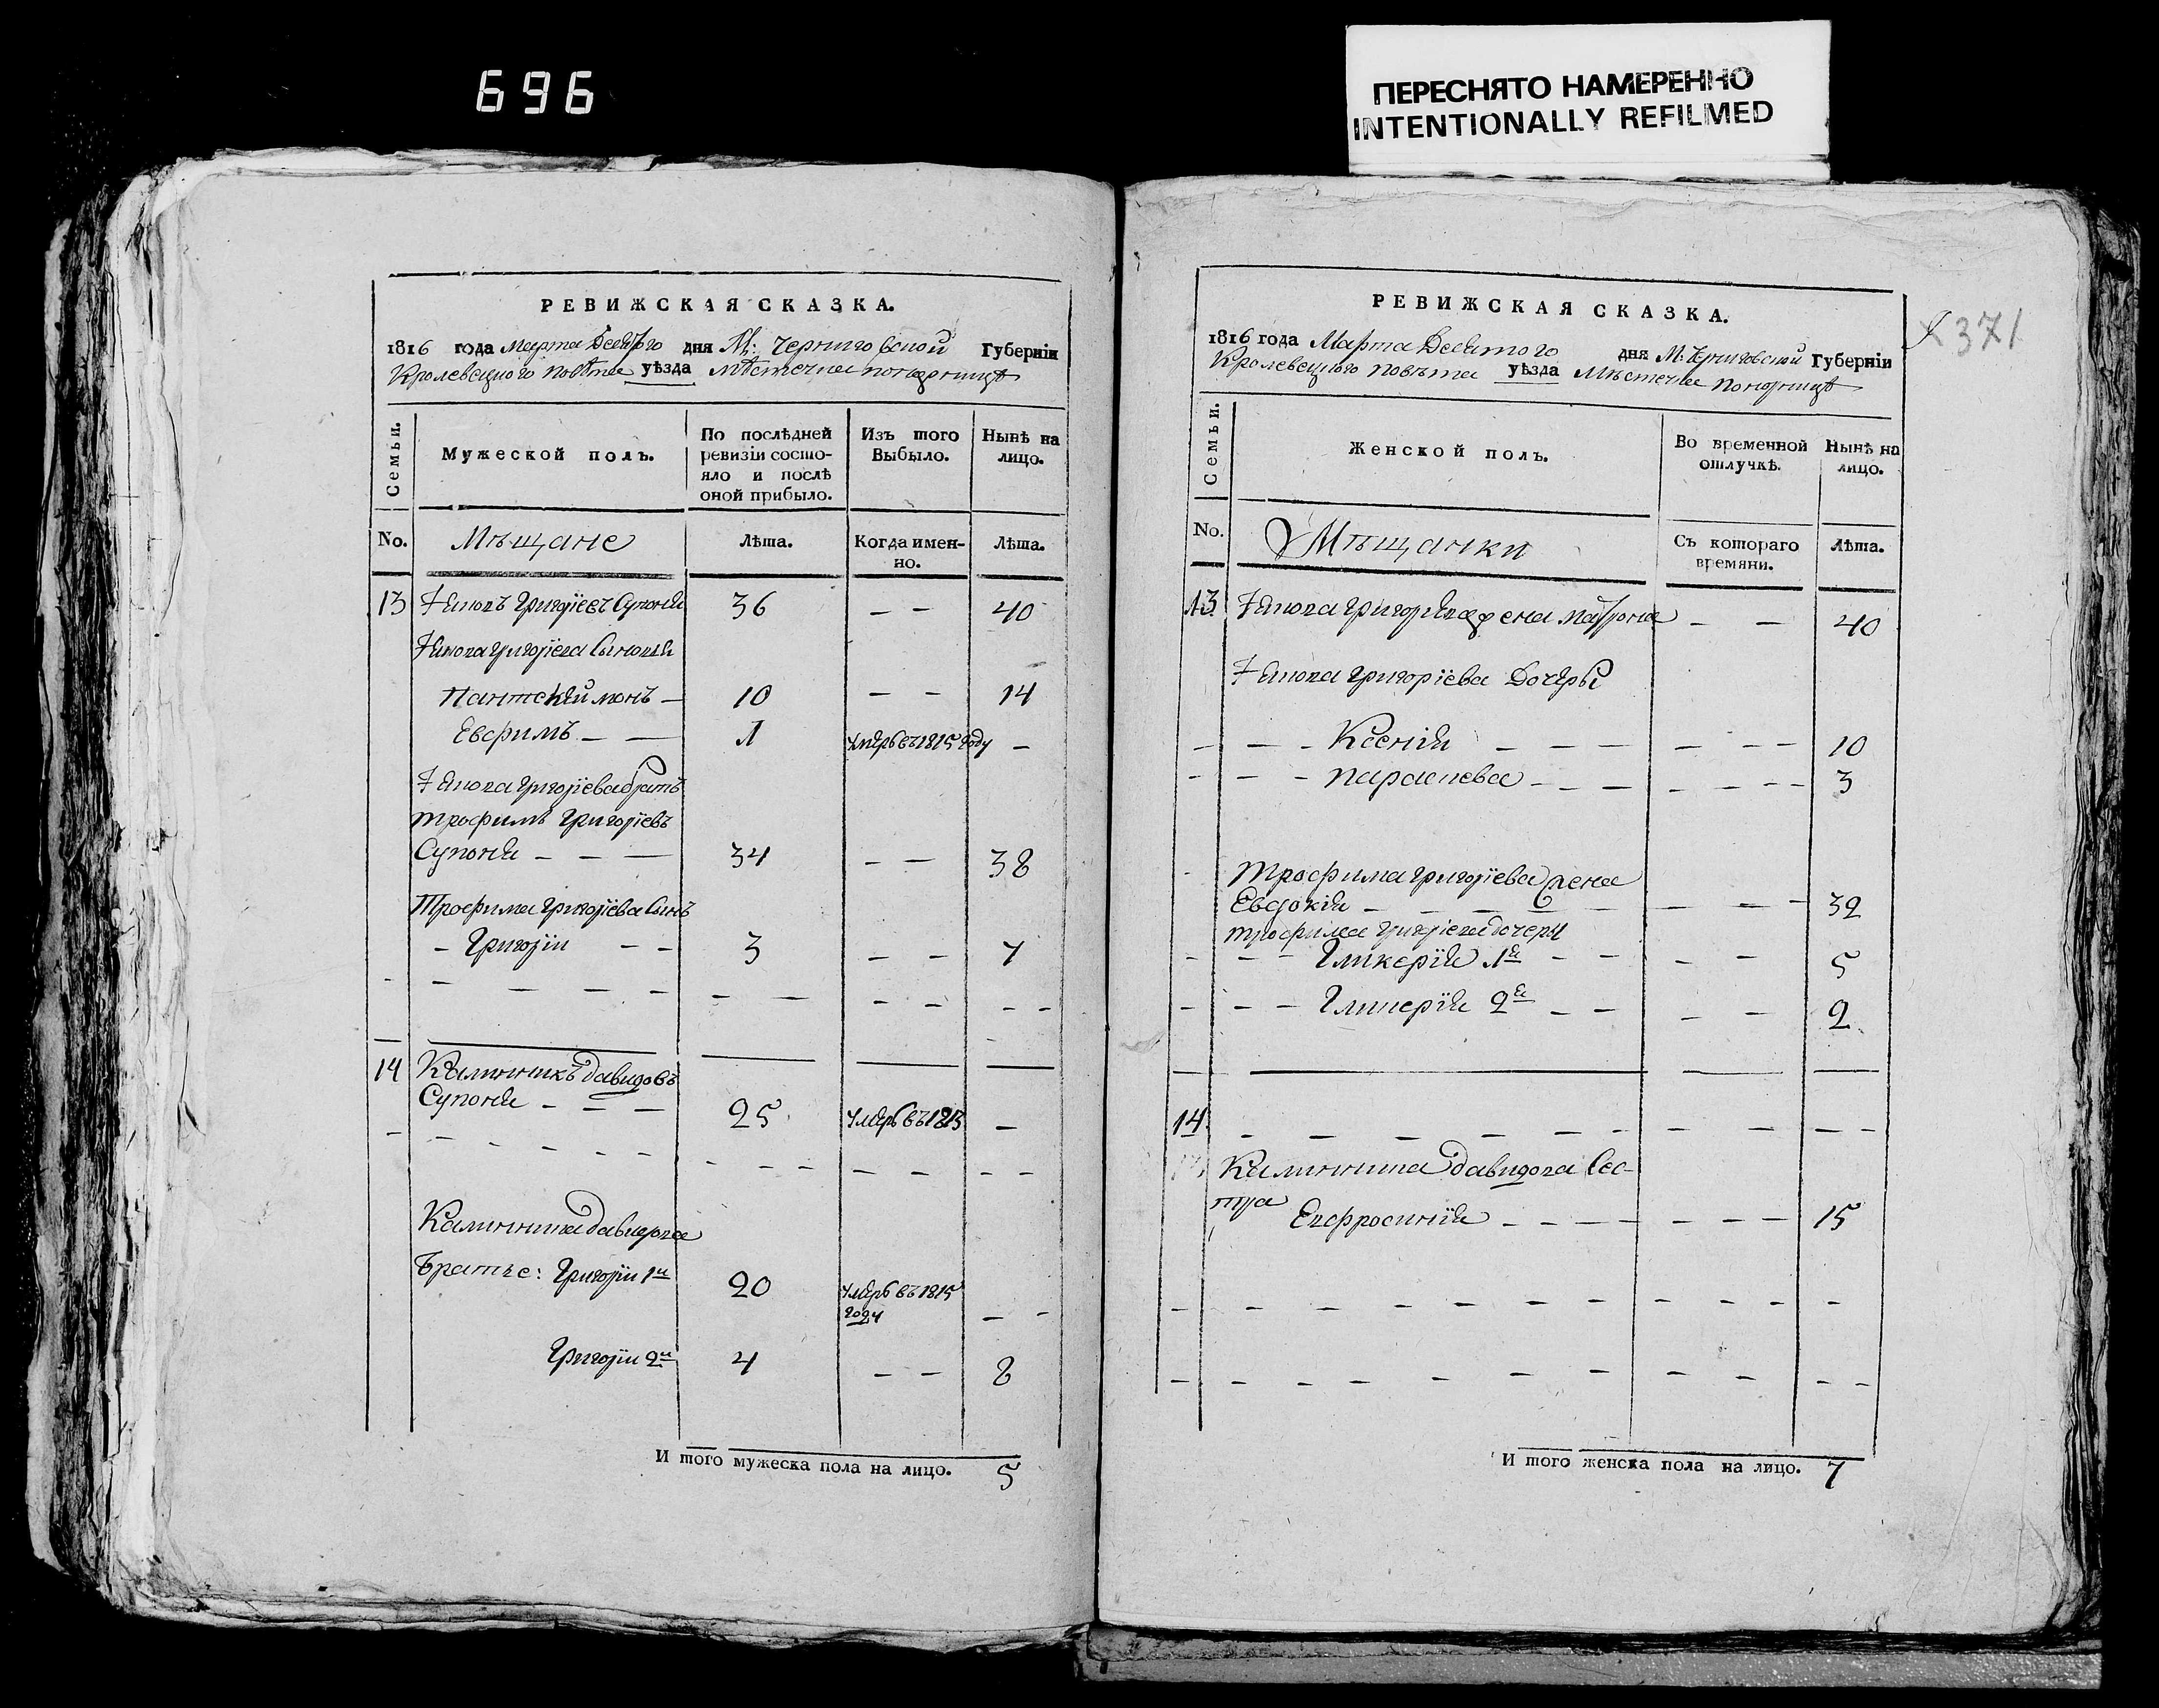 696
ПЕРЕСНЯТО НАМЕРЕННО
INTENTIONALLY REFILMED
РЕВИЖСКАЯ СКАЗКА.
1816 года марта Десятого дня М: Черниговской Губерніи
Кролевецкого повѣта уѣзда мѣстечка понорницѣ
Семьи.
Мужеской полъ.
По послѣдней ревизіи состояло и послѣ оной прибыло.
Изъ того Выбыло.
Нынѣ на лицо.
No.
Мѣщане
Лѣта.
Когда именно.
Лѣта.
13 Григорїевъ Супоня 36 – – 40
Григорїева Сыновя
Пантелеймонъ – 10 – – 14
Евфимъ – – 1 умеръ въ 1815 году –
Григорїева братъ
трофимъ Григорїевъ
Супоня – – – 34 – – 38
Трофима Григорїева Сынъ
– Григорїи – – 3 – – 7
14 Калинникъ давидовъ
Супоня – – – 25 умеръ въ 1813 –
Калинника давидова
Братъе: Григорїи 1й 20 умеръ въ 1815
году – –
Григорїи 2й 4 – – 8
И того мужеска пола на лицо. 5
371
РЕВИЖСКАЯ СКАЗКА.
1816 года Марта Десятого дня М. Черниговской Губерніи
Кролевецкого повѣта уѣзда Мѣстечка понорницѣ
Семьи.
Женской полъ.
Во временной отлучкѣ.
Нынѣ на лицо.
No.
Мѣщанки
Съ котораго времяни.
Лѣта.
13 – – 40
Григорїева Дочеры
– – – Ксенїя – – – – – – 10
– – – параскева – – – – – – – 3
трофима григорїева жена
Евдокїя – – – – – – – – 32
трофима григорїева дочеры
– – – Гликерїя 1я – – – – 5
– – – Гликерїя 2я – – – – 2
14 – – – – – – – – – –
Калинника давидова Сес-
тра Евфросинїя – – – – – – – 15
И того женска пола на лицо. 7